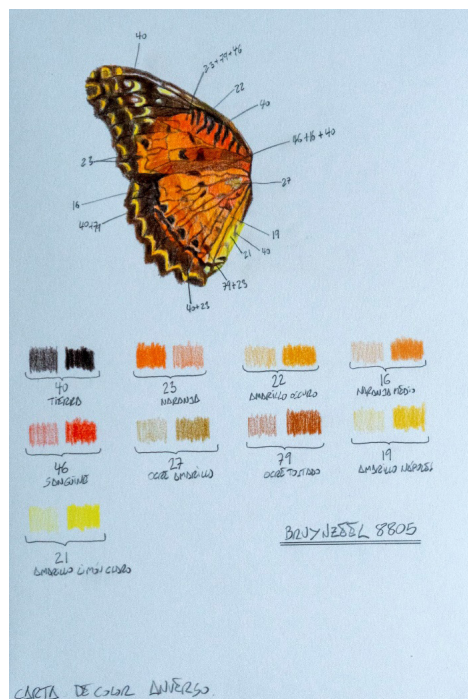 40
23+79+46
22
40
46+16+40
23
27
16
40+79
19
40
21
79+23
40+23
40
TIERRA
23
NARANJA
22
AMARILLO OSCURO
16
NARANJA MEDIO
46
SANGUINA
27
OCRE AMARILLO
79
OCRE TOSTADO
19
AMARILLO NÁPOLES
21
AMARILLO LIMÓN CLARO
BRUYNZEEL 8805
CARTA DE COLOR ANVERSO.